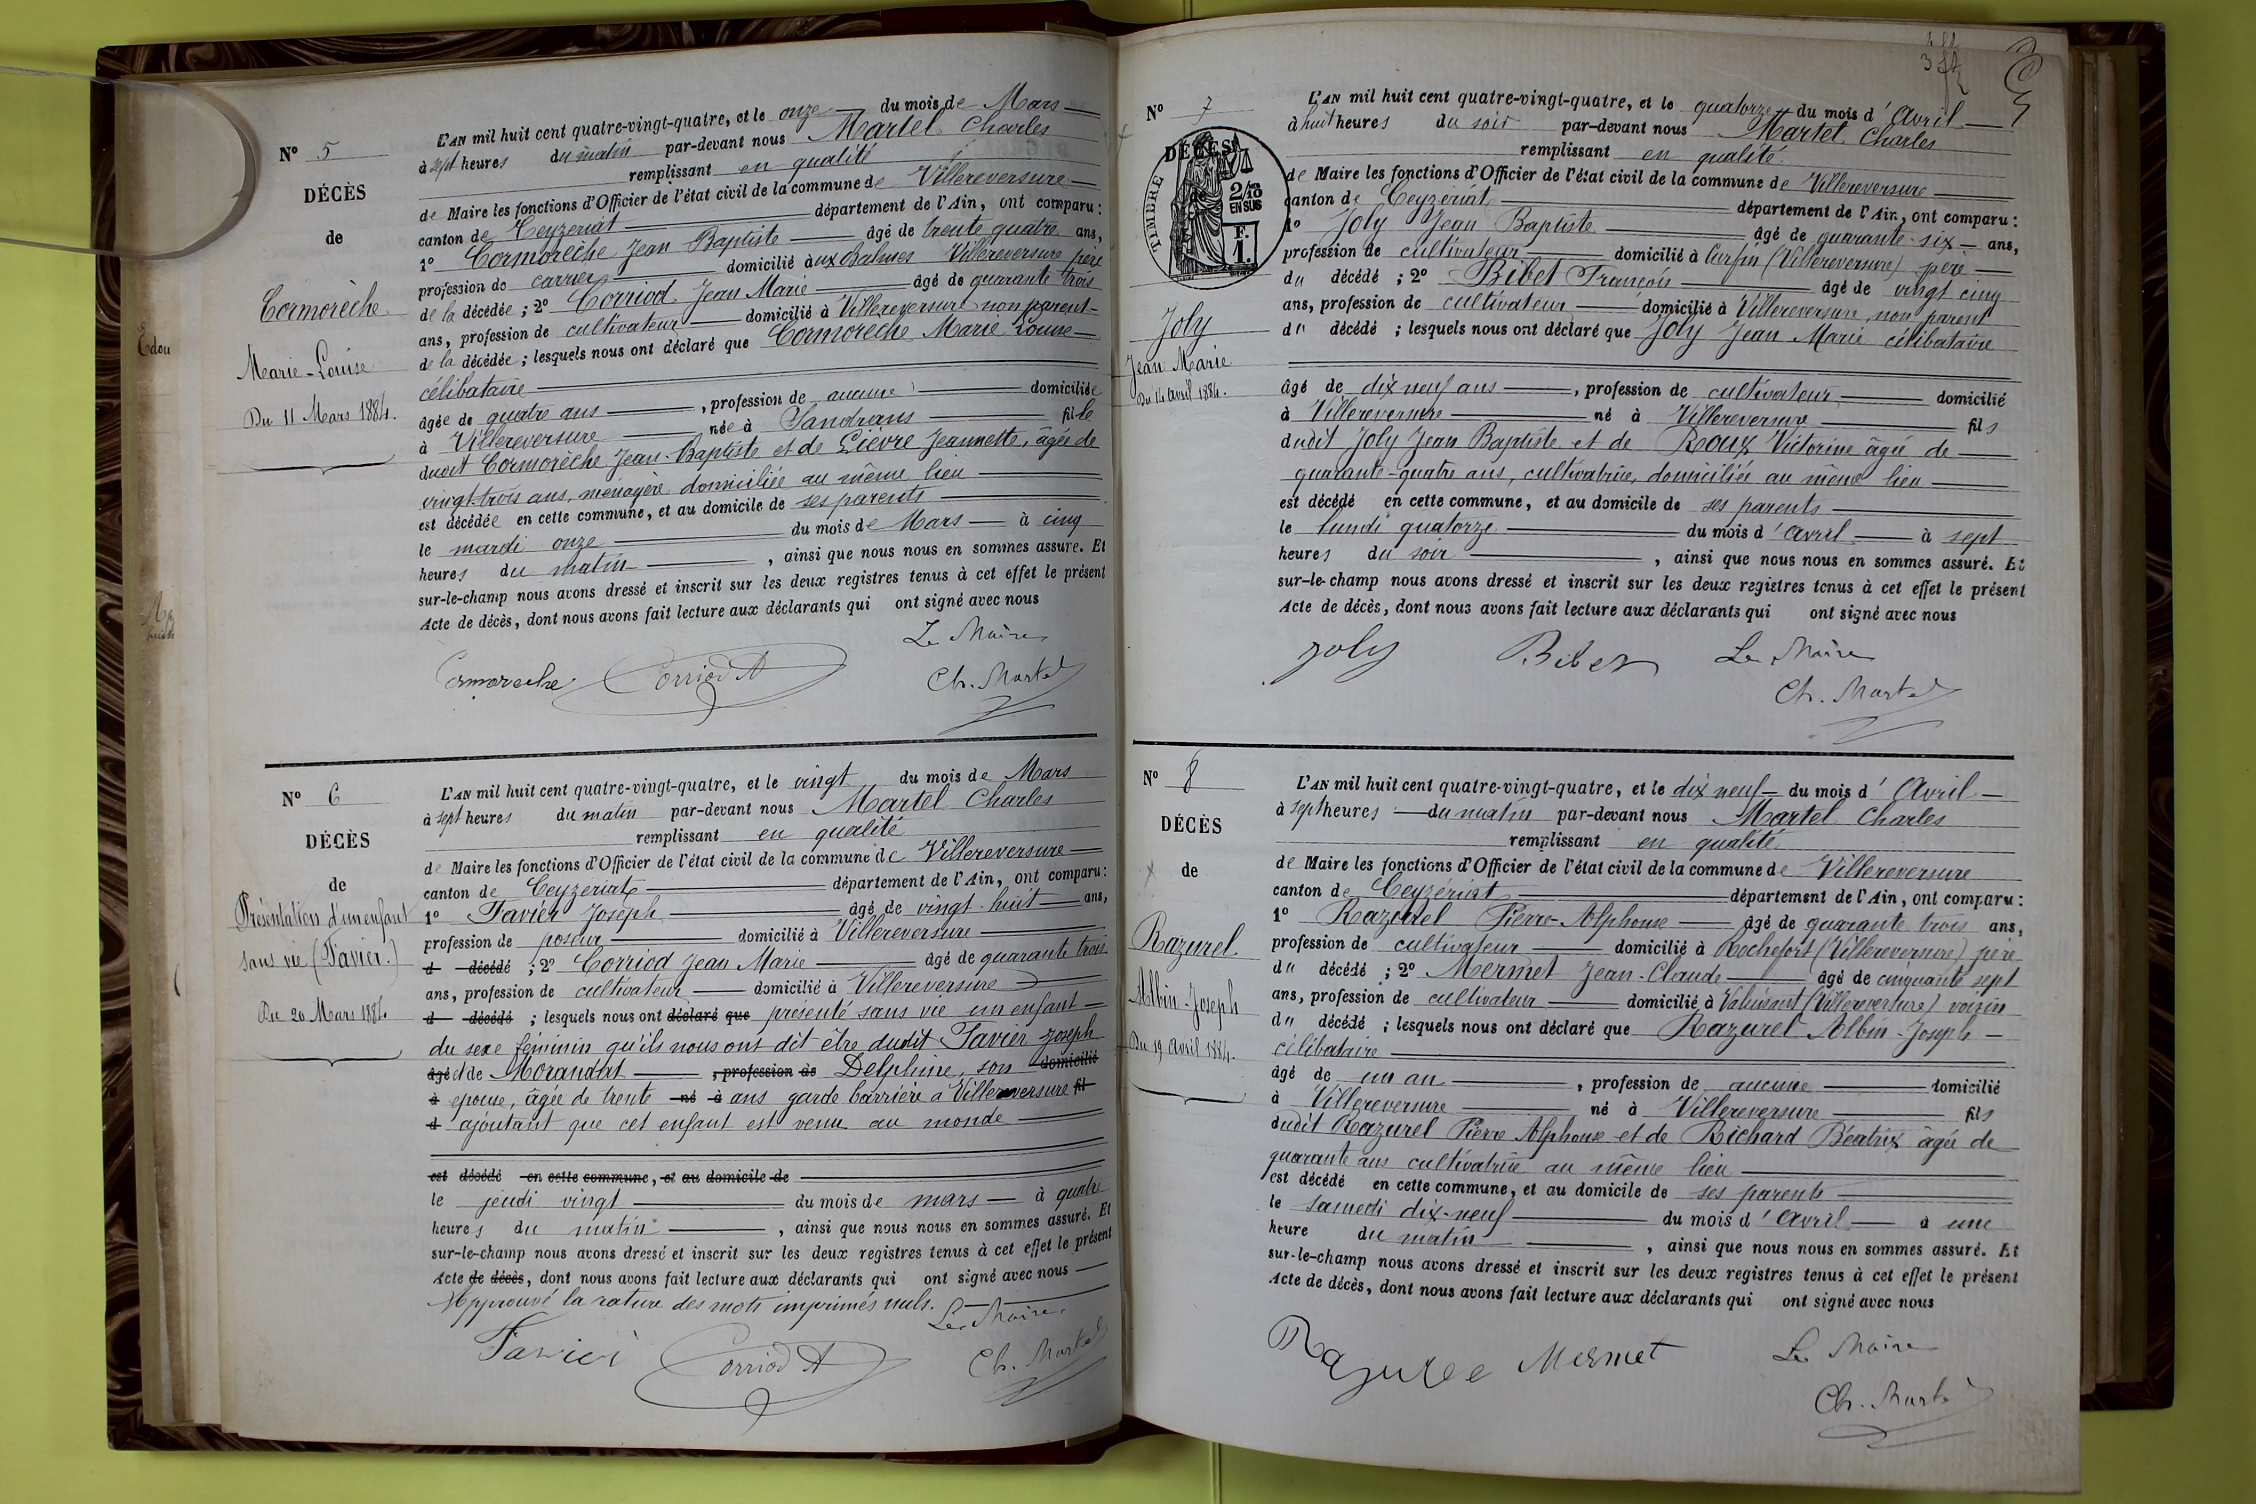 N° 5
DÉCÈS
de
Cormorèche
Marie-Louise
Du 11 Mars 1884.
L'AN mil huit cent quatre-vingt-quatre, et le onze du mois de Mars
à sept heures du matin par-devant nous Martel Charles
remplissant en qualité
de Maire les fonctions d'Officier de l'état civil de la commune de Villereversure
canton de Ceyzériat département de l'Ain, ont comparu :
1° Cormorèche Jean Baptiste âgé de trente quatre ans,
profession de carrier domicilié aux Balmes Villereversure père
de la décédée ; 2° Corriod Jean Marie âgé de quarante trois
ans, profession de cultivateur domicilié à Villereversure non parent
de la décédée ; lesquels nous ont déclaré que Cormorèche Marie Louise
célibataire
âgée de quatre ans, profession de aucune domiciliée
à Villereversure née à Sandrans fille
dudit Cormorèche Jean-Baptiste et de Lièvre Jeannette, âgée de
vingt-trois ans, ménagère domiciliée au même lieu
est décédée en cette commune, et au domicile de ses parents
le mardi onze du mois de Mars à cinq
heures du matin, ainsi que nous nous en sommes assuré. Et
sur-le-champ nous avons dressé et inscrit sur les deux registres tenus à cet effet le présent
Acte de décès, dont nous avons fait lecture aux déclarants qui ont signé avec nous
Le Maire
Cormoreche Corriod A Ch. Martel
N° 6
DÉCÈS
de
Présentation d'un enfant
sans vie (Favier.)
Du 20 Mars 1884
L'AN mil huit cent quatre-vingt-quatre, et le vingt du mois de Mars
à sept heures du matin par-devant nous Martel Charles
remplissant en qualité
de Maire les fonctions d'Officier de l'état civil de la commune de Villereversure
canton de Ceyzériat département de l'Ain, ont comparu :
1° Favier Joseph âgé de vingt-huit ans,
profession de poseur domicilié à Villereversure
d décédé ; 2° Corriod Jean Marie âgé de quarante trois
ans, profession de cultivateur domicilié à Villereversure
d décédé ; lesquels nous ont déclaré que présenté sans vie un enfant
du sexe féminin qu'ils nous ont dit être dudit Favier Joseph
âgé et de Morandat, profession de Delphine, son domicilié
à épouse, âgée de trente né à ans garde barrière à Villereversure fil
d ajoutant que cet enfant est venu au monde
est décédé en cette commune, et au domicile de
le jeudi vingt du mois de mars à quatre
heures du matin, ainsi que nous nous en sommes assuré. Et
sur-le-champ nous avons dressé et inscrit sur les deux registres tenus à cet effet le présent
Acte de décès, dont nous avons fait lecture aux déclarants qui ont signé avec nous
Approuvé la rature des mots imprimés nuls. Le Maire
Favier Corriod A Ch. Martel
N° 7
DÉCÈS
TIMBRE
2/10
EN SUS
F.
1.
Joly
Jean Marie
Du 14 avril 1884.
L'AN mil huit cent quatre-vingt-quatre, et le quatorze du mois d'Avril
à huit heures du soir par-devant nous Martel Charles
remplissant en qualité
de Maire les fonctions d'Officier de l'état civil de la commune de Villereversure
canton de Ceyzériat département de l'Ain, ont comparu :
1° Joly Jean Baptiste âgé de quarante-six ans,
profession de cultivateur domicilié à Curfin (Villereversure) père
du décédé ; 2° Bibet François âgé de vingt cinq
ans, profession de cultivateur domicilié à Villereversure, non parent
du décédé ; lesquels nous ont déclaré que Joly Jean Marie célibataire
âgé de dix neuf ans, profession de cultivateur domicilié
à Villereversure né à Villereversure fils
dudit Joly Jean Baptiste et de Roux Victorine âgée de
quarante-quatre ans, cultivatrice, domiciliée au même lieu
est décédé en cette commune, et au domicile de ses parents
le lundi quatorze du mois d'avril à sept
heures du soir, ainsi que nous nous en sommes assuré. Et
sur-le-champ nous avons dressé et inscrit sur les deux registres tenus à cet effet le présent
Acte de décès, dont nous avons fait lecture aux déclarants qui ont signé avec nous
Joly Bibet Le Maire
Ch. Martel
N° 8
DÉCÈS
de
Razurel
Albin-Joseph
Du 19 avril 1884.
L'AN mil huit cent quatre-vingt-quatre, et le dix neuf du mois d'Avril
à sept heures du matin par-devant nous Martel Charles
remplissant en qualité
de Maire les fonctions d'Officier de l'état civil de la commune de Villereversure
canton de Ceyzériat département de l'Ain, ont comparu :
1° Razurel Pierre-Alphonse âgé de quarante trois ans,
profession de cultivateur domicilié à Rochefort (Villereversure) père
du décédé ; 2° Mermet Jean-Claude âgé de cinquante sept
ans, profession de cultivateur domicilié à (Villereversure) voisin
du décédé ; lesquels nous ont déclaré que Razurel Albin-Joseph
célibataire
âgé de un an, profession de aucune domicilié
à Villereversure né à Villereversure fils
dudit Razurel Pierre Alphonse et de Richard Béatrix âgée de
quarante ans cultivatrice au même lieu
est décédé en cette commune, et au domicile de ses parents
le samedi dix-neuf du mois d'avril à une
heure du matin, ainsi que nous nous en sommes assuré. Et
sur-le-champ nous avons dressé et inscrit sur les deux registres tenus à cet effet le présent
Acte de décès, dont nous avons fait lecture aux déclarants qui ont signé avec nous
Razurel Mermet Le Maire
Ch. Martel